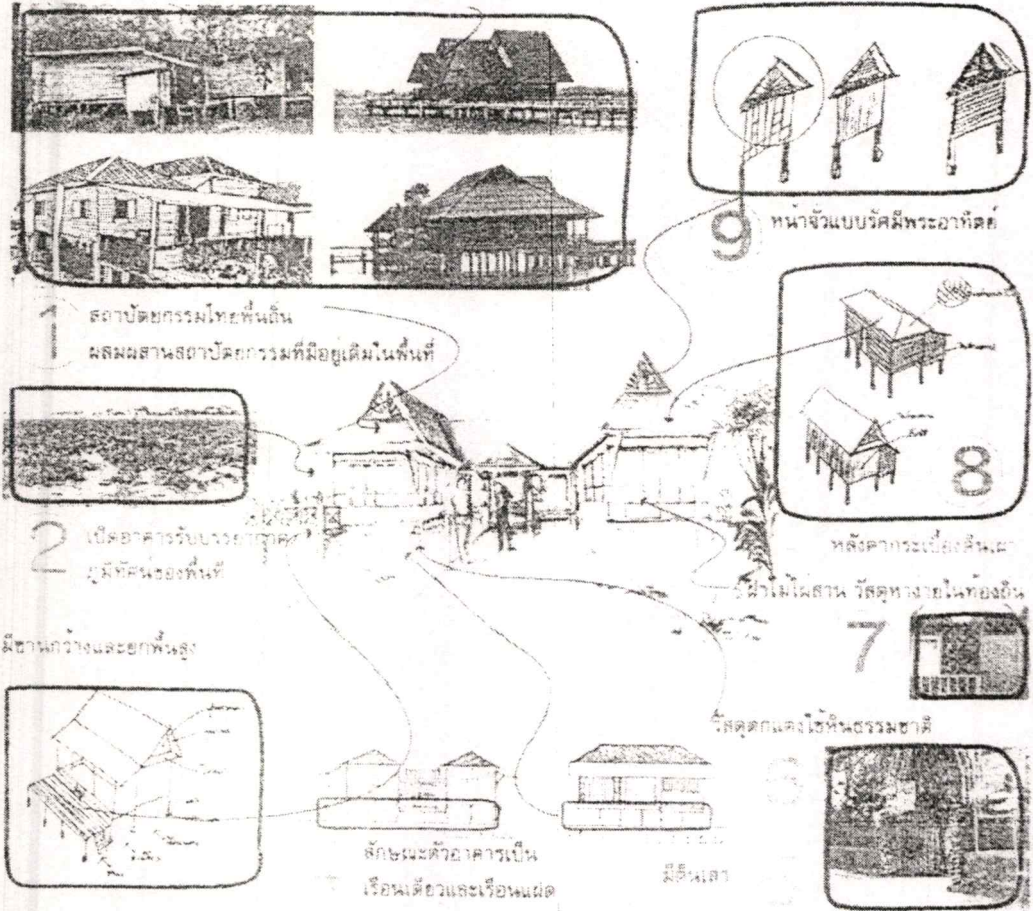 1
สถาปัตยกรรมไทยพื้นถิ่น
ผสมผสานสถาปัตยกรรมที่มีอยู่เดิมในพื้นที่
2
เปิดอาคารรับบรรยากาศ
ภูมิทัศน์ของพื้นที่
มีชานกว้างและยกพื้นสูง
ลักษณะตัวอาคารเป็น
เรือนเดี่ยวและเรือนแฝด
มีตีนเสา
6
วัสดุตกแต่งใช้หินธรรมชาติ
7
ฝาไม้ไผ่สาน วัสดุหาง่ายในท้องถิ่น
8
หลังคากระเบื้องดินเผา
9
หน้าจั่วแบบรัศมีพระอาทิตย์